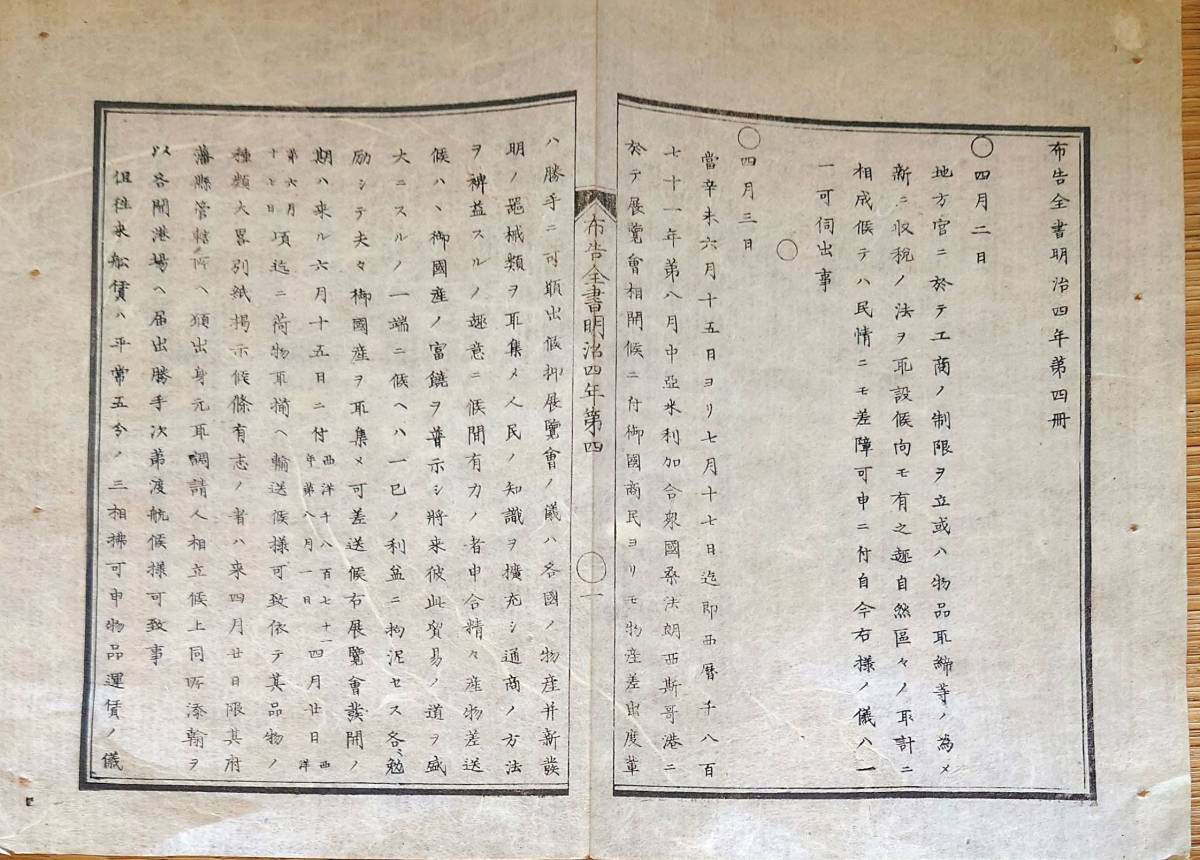 布告全書明治四年第四冊
〇四月二日
地方官ニ於テ工商ノ制限ヲ立或ハ物品取締等ノ為メ
新ニ収税ノ法ヲ取設候向モ有之趣自然區々ノ取計ニ
相成候テハ民情ニモ差障可申ニ付自今右様ノ儀ハ一
一可伺出事
〇
〇四月三日
當辛未六月十五日ヨリ七月十七日迄即西暦千八百
七十一年第八月中亞米利加合衆國桑法朗西斯哥港ニ
於テ展覽會相開候ニ付御國商民ヨリモ物産差出度輩
布告全書明治四年第四
〇一
ハ勝手ニ可願出候抑展覽會ノ儀ハ各國ノ物産并新發
明ノ器械類ヲ取集メ人民ノ知識ヲ擴充シ通商ノ方法
ヲ裨益スルノ趣意ニ候間有力ノ者申合精々産物差送
候ハヽ御國産ノ富饒ヲ普示シ將来彼此貿易ノ道ヲ盛
大ニスルノ一端ニ候ヘハ一己ノ利益ニ拘泥セス各〻勉
励シテ夫々御國産ヲ取集メ可差送候右展覽會發開ノ
期ハ来ル六月十五日ニ付西洋千八百七十一年第八月一日四月廿日西洋
第六月十七日頃迄ニ荷物取揃ヘ輸送候様可致依テ其品物ノ
種類大畧別紙掲示候條有志ノ者ハ来四月廿日限其府
藩縣管轄所ヘ願出身元取調請人相立候上同所添翰ヲ
以各開港場ヘ届出勝手次第渡航候様可致事
但往来船賃ハ平常五分ノ三相拂可申物品運賃ノ儀